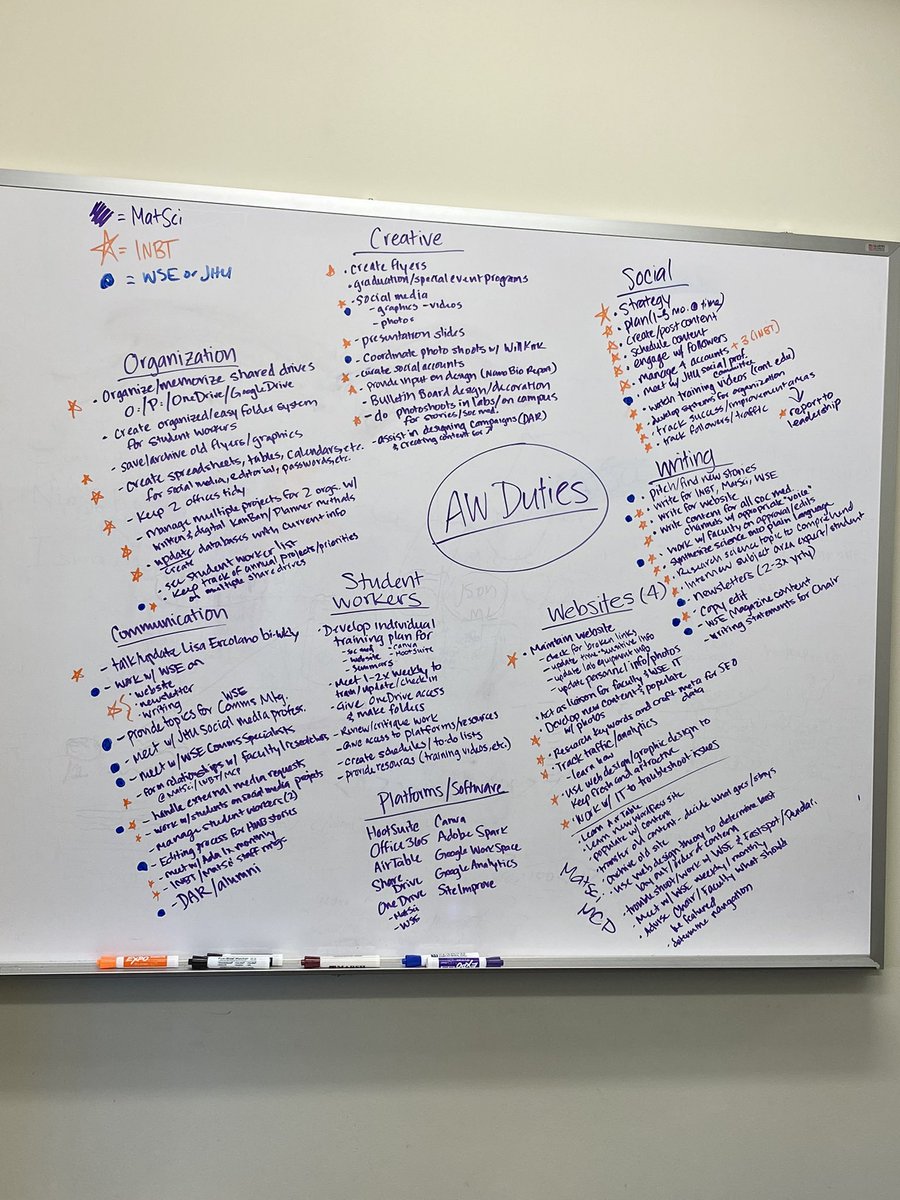 = MatSci
= INBT
= WSE or JHU
Organization
- Organize/memorize shared drives
O:/P:/OneDrive/GoogleDrive
- Create organized/easy folder system
for student workers
- save/archive old flyers/graphics
- Create spreadsheets, tables, calendars, etc.
for social media, editorial, passwords, etc.
- Keep 2 offices tidy
- manage multiple projects for 2 orgs. w/
written & digital Kanban/Planner methods
- update databases with current info
create
- student worker list
- Keep track of annual projects/priorities
on multiple share drives
Communication
- talk/update Lisa Ercolano bi-wkly
- work w/ WSE on
• website
• newsletter
• writing
- Provide topics for WSE Comms Mtg.
- Meet w/ JHU Social media profess.
- meet w/ WSE Comms Specialists
- form relationships w/ faculty/researchers
@ MatSci/INBT/MCP
- handle external media requests
- work w/ students on social media projects
- Manage student workers (2)
- Editing process for HUB stories
- meet w/ Ada monthly
- INBT/MatSci staff mtgs.
- DAR/alumni
Creative
• create flyers
• graduation/special event programs
• social media
- graphics - videos
- photos
- presentation slides
- Coordinate photo shoots w/ Will Kirk
- curate social accounts
- provide input on design (Nano Bio Report)
- Bulletin Board design/decoration
- do photoshoots in labs/on campus
for stories/soc med.
- assist in designing campaigns (DAR)
& creating content for
AW Duties
Student
Workers
- Develop individual
training plan for
- soc med - Canva
- website - Hootsuite
- summers
- Meet 1-2x weekly to
train/update/check in
- Give OneDrive access
& make folders
- Review/critique work
- Give access to platforms/resources
- create schedules/to-do lists
- provide resources (training videos, etc.)
Platforms/Software
Hootsuite Canva
Office 365 Adobe Spark
AirTable Google WorkSpace
Share Drive Google Analytics
One Drive SiteImprove
- MatSci
- WSE
Social
• Strategy
• plan (1-3 mo. @ time)
• create/post content
• schedule content
• engage w/ followers
• manage 4 accounts + 3 (INBT)
• meet w/ JHU social prof.
committee
• watch training videos (cont. edu)
• develop systems for organization
• track success/improvement areas
• track followers/traffic
report to
leadership
Writing
• pitch/find new stories
• write for INBT, MatSci, WSE
• write for website
• write content for all soc med
channels w/ appropriate "voice"
• work w/ faculty on approval/edits
• synthesize science into plain language
• Research science topic to comprehend
• Interview subject area expert/student
• newsletters (2-3x yrly)
• copy edit
- WSE Magazine content
- writing statements for Chair
Websites (4)
• Maintain website
- check for broken links
- update time-sensitive info
- update lab equipment info
- update personnel info/photos
• Act as liaison for faculty & WSE IT
• Develop new content & populate
w/ photos
• Research keywords and craft meta for SEO
data
• Track traffic/analytics
- learn how
• Use web design/graphic design to
keep fresh and attractive
• Work w/ IT to troubleshoot issues
MatSci
MCP
• Learn AirTable
• Learn new WordPress site
• populate w/ content
• transfer old content - decide what goes/stays
• archive old site
• use web design theory to determine best
lay out/order & content
• troubleshoot/work w/ WSE & Fastspot/
• Meet w/ WSE weekly/monthly
• Advise Chair/Faculty what should
be featured
• determine navigation
EXPO
EXPO